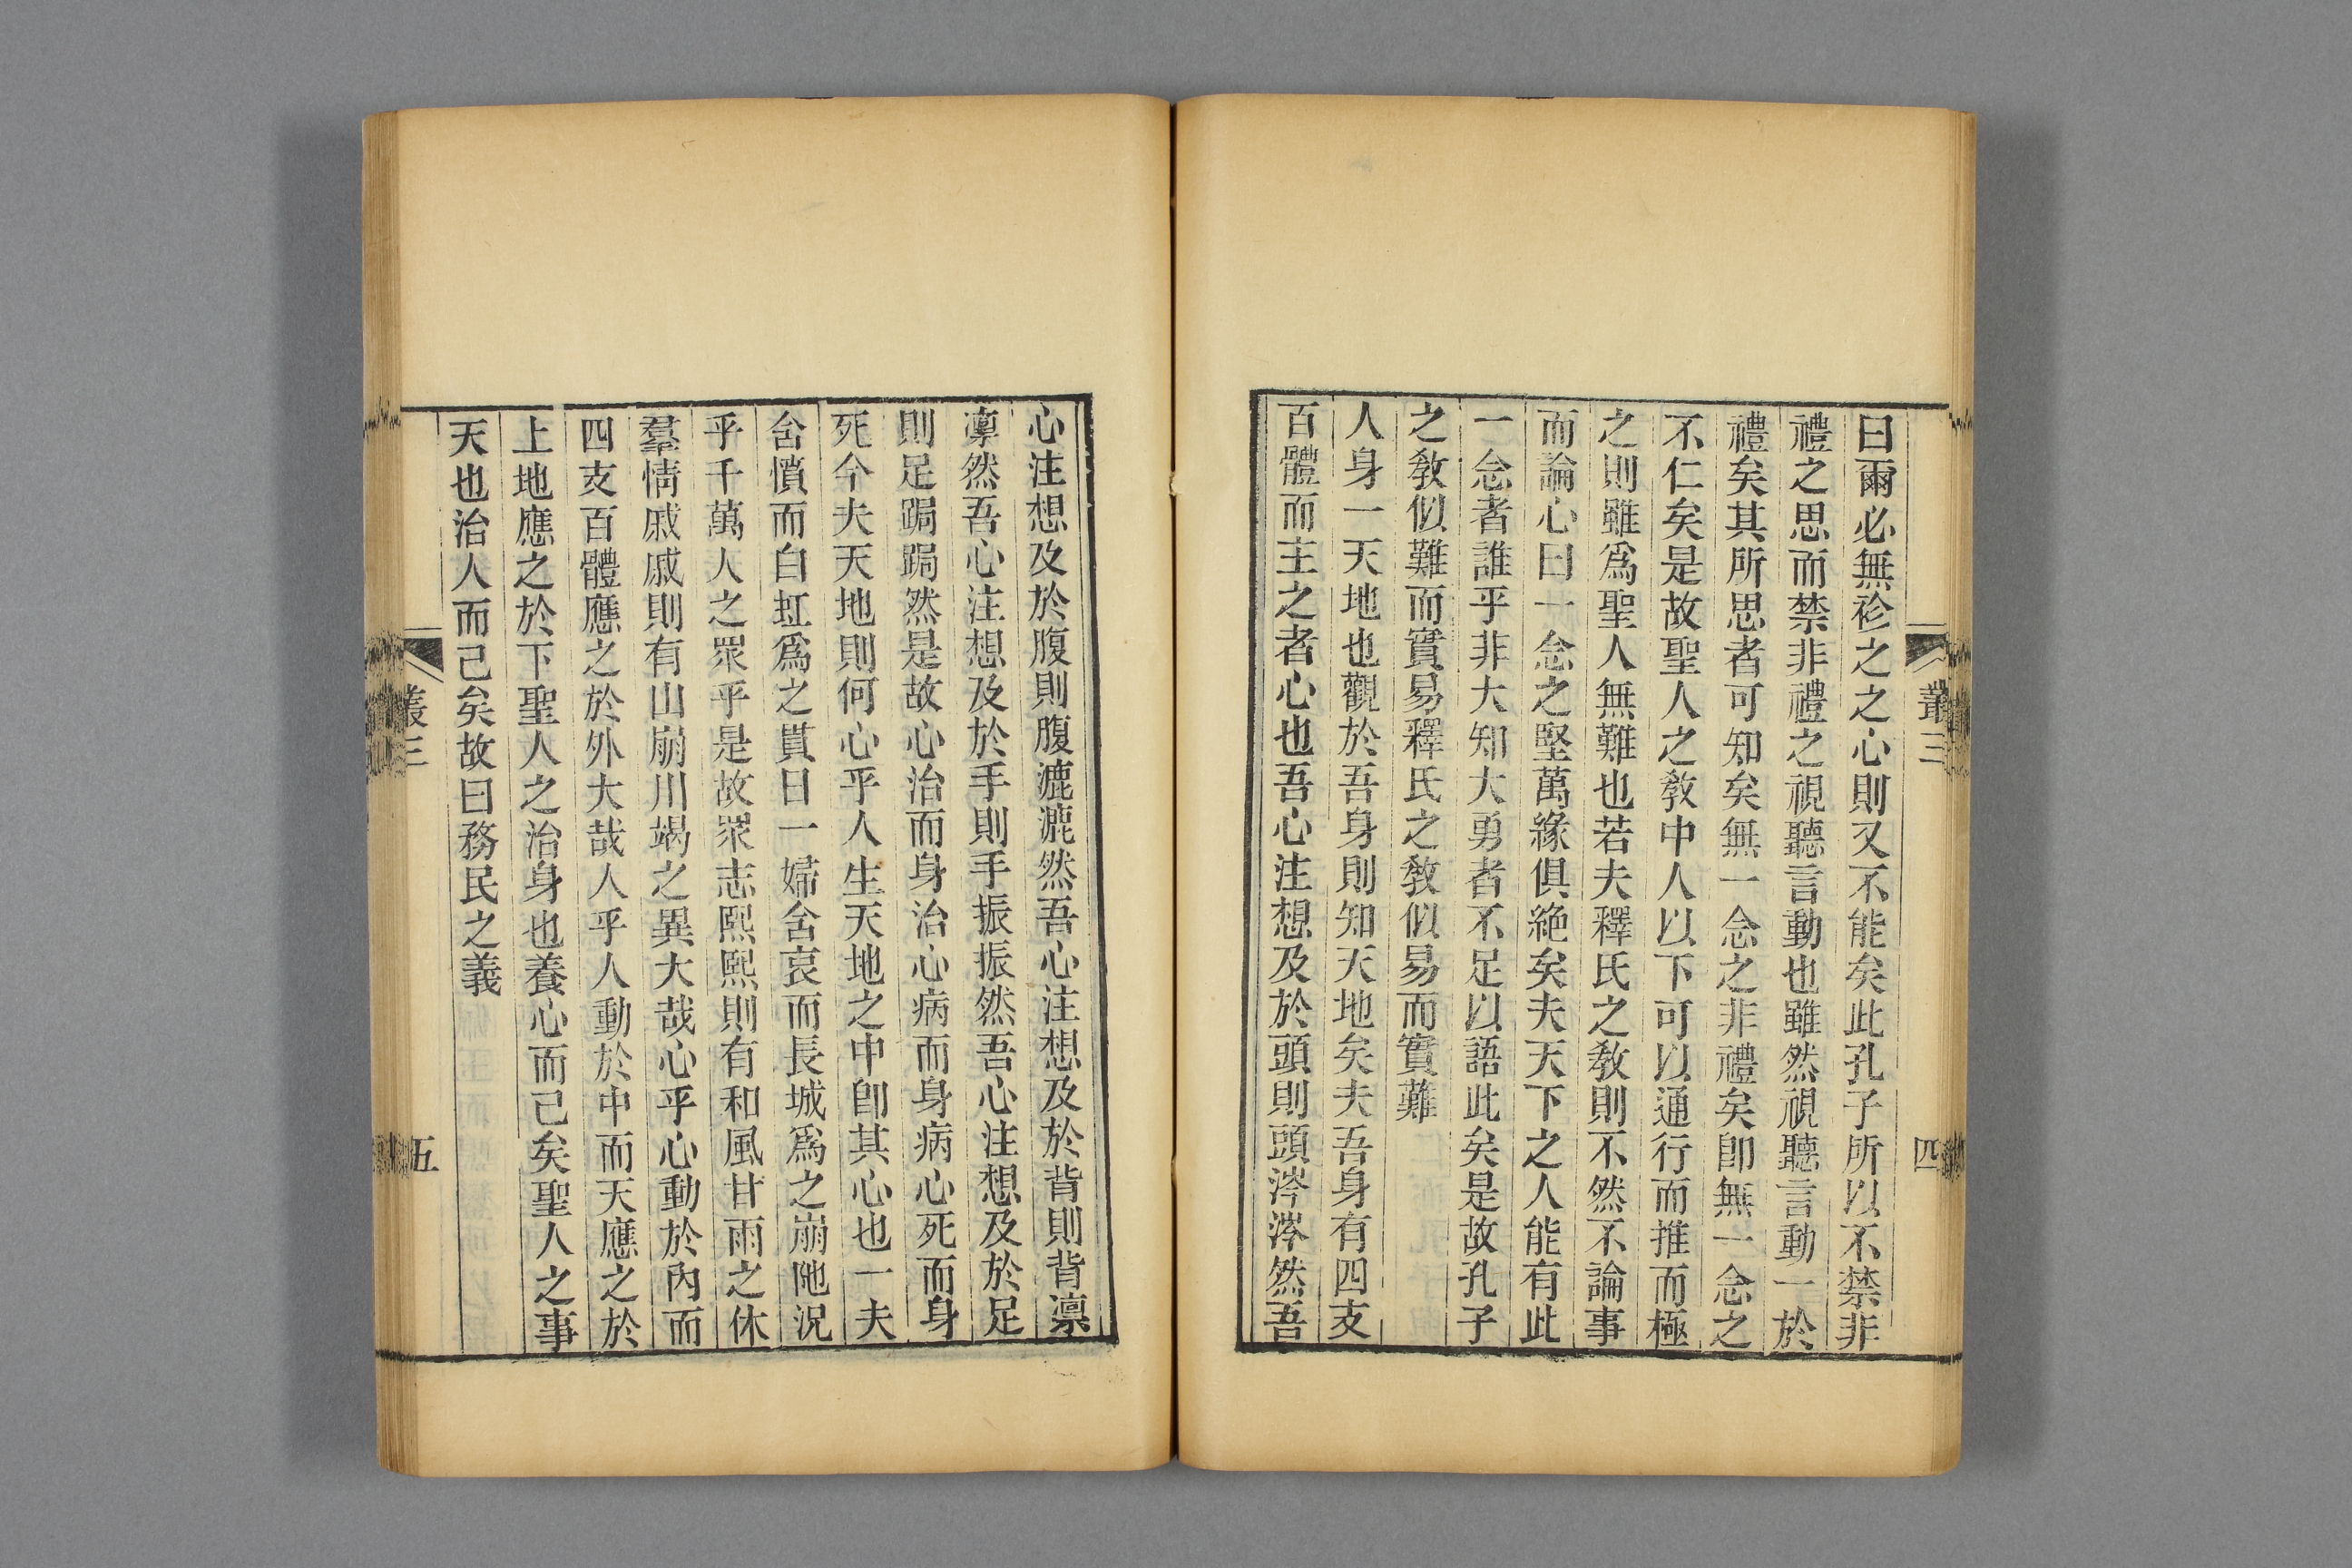 叢三
四
曰爾必無袗之之心則又不能矣此孔子所以不禁非
禮之思而禁非禮之視聽言動也雖然視聽言動一於
禮矣其所思者可知矣無一念之非禮矣卽無一念之
不仁矣是故聖人之敎中人以下可以通行而推而極
之則雖爲聖人無難也若夫釋氏之敎則不然不論事
而論心曰一念之堅萬緣俱絶矣夫天下之人能有此
一念者誰乎非大知大勇者不足以語此矣是故孔子
之敎似難而實易釋氏之敎似易而實難
人身一天地也觀於吾身則知天地矣夫吾身有四支
百體而主之者心也吾心注想及於頭則頭涔涔然吾
心注想及於腹則腹漉漉然吾心注想及於背則背凜
凜然吾心注想及於手則手振振然吾心注想及於足
則足跼跼然是故心治而身治心病而身病心死而身
死今夫天地則何心乎人生天地之中卽其心也一夫
含憤而白虹爲之貫日一婦含哀而長城爲之崩阤況
乎千萬人之眾乎是故眾志熙熙則有和風甘雨之休
羣情戚戚則有山崩川竭之異大哉心乎心動於內而
四支百體應之於外大哉人乎人動於中而天應之於
上地應之於下聖人之治身也養心而已矣聖人之事
天也治人而已矣故曰務民之義
叢三
五